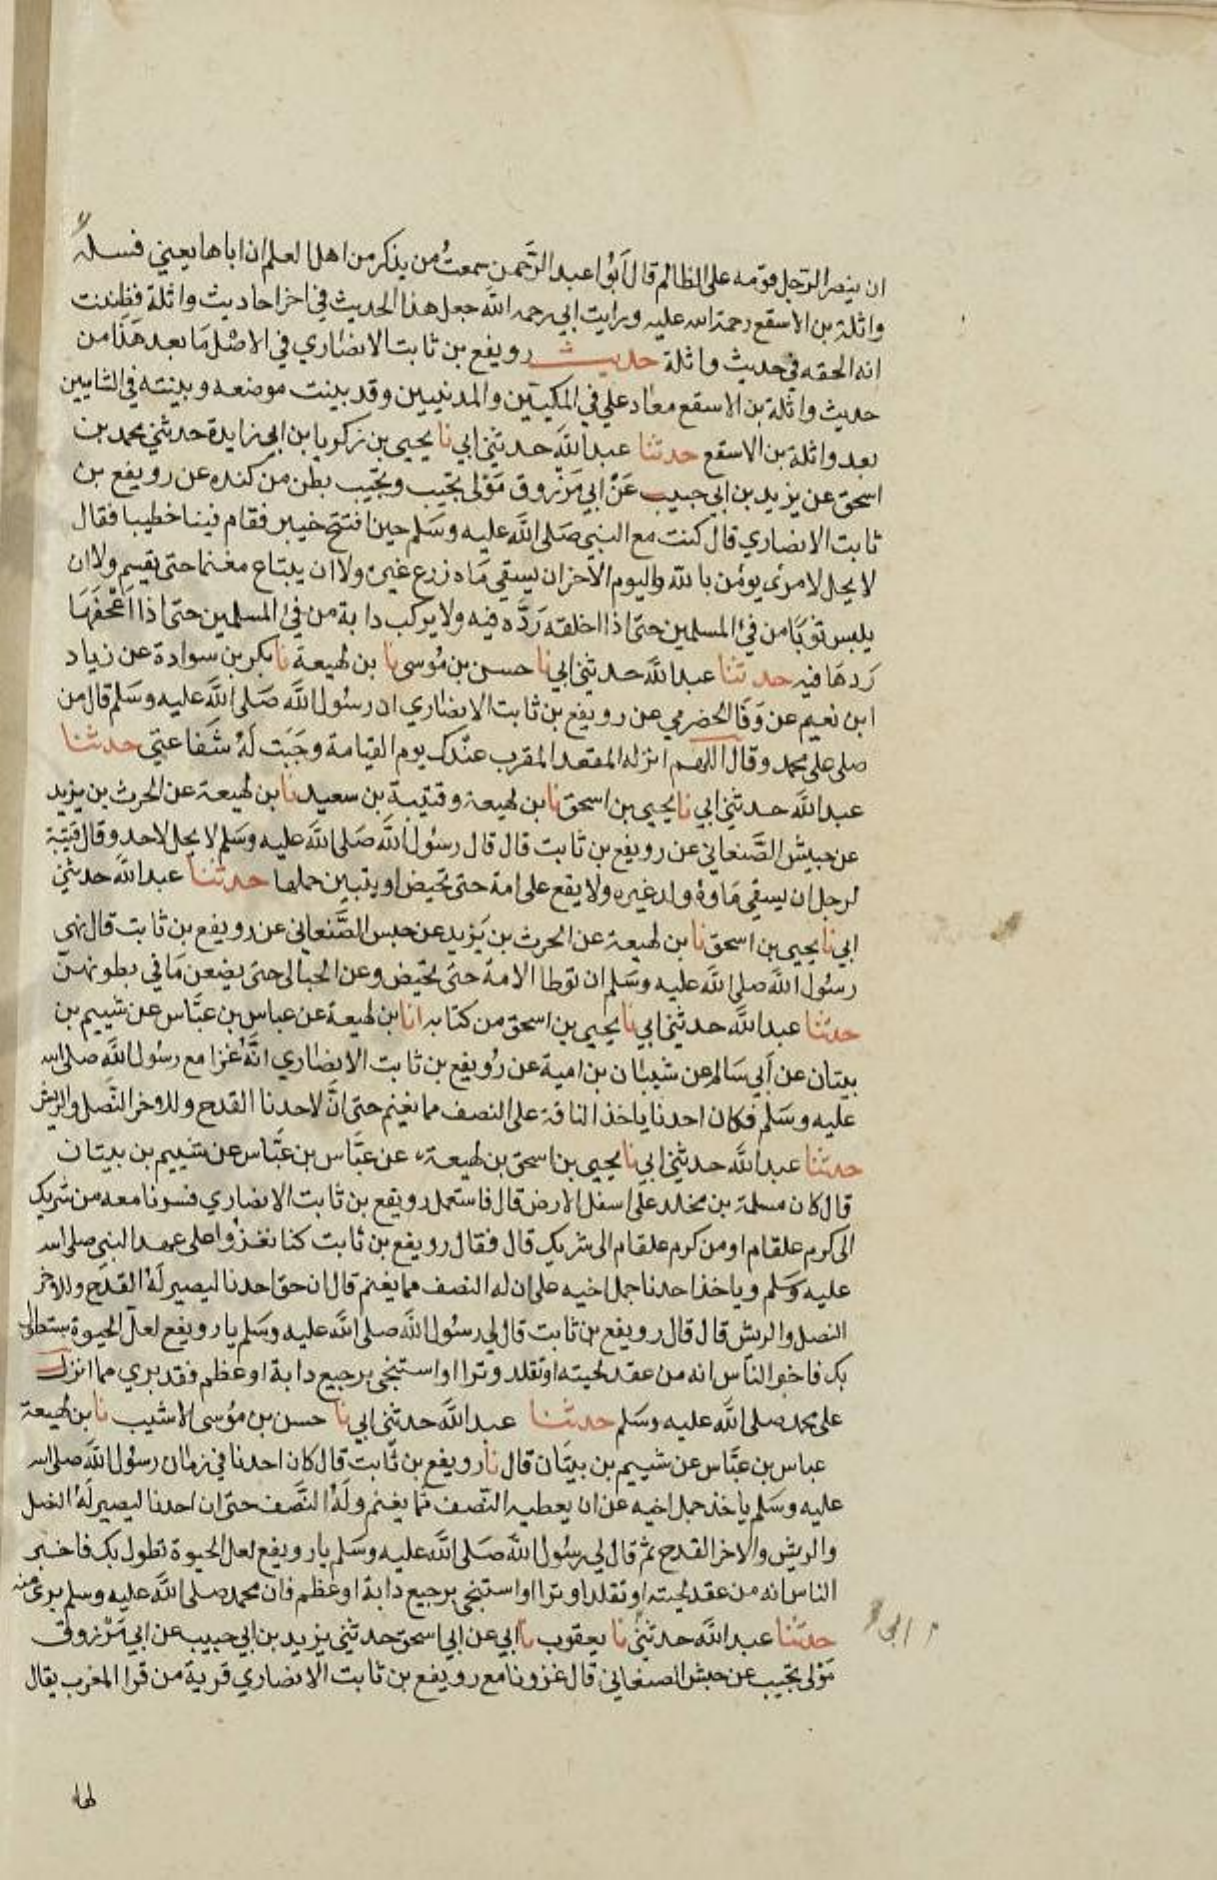 ان ينصر الرجل قومه على الظالم قال ابوا عبد الرحمن سمعت من يذكر من اهل العلم ان اباها يعني فسيلة
واثلة بن الاسقع رحمة الله عليه ورايت ابي رحمه الله جعل هذا الحديث في اخر احاديث واثلة فظننت
انه الحقه في حديث واثلة حديث رويفع بن ثابت الانصاري في الاصل ما بعد هذا من
حديث واثلة بن الاسقع معاد علي في المكيين والمدنيين وقد بينت موضعه وبينته في الشاميين
بعد واثلة بن الاسقع حدثنا عبد الله حدثني ابي نا يحيى بن زكريا بن ابي زايدة حدثني محمد بن
اسحق عن يزيد بن ابي حبيب عن ابي مرزوق مولى تجيب وتجيب بطن من كنده عن رويفع بن
ثابت الانصاري قال كنت مع النبي صلى الله عليه وسلم حين افتتح خيبر فقام فينا خطيبا فقال
لا يحل لامرئ يومن بالله واليوم الاخر ان يسقي ماه زرع غيره ولا ان يبتاع مغنما حتى يقسم ولا ان
يلبس ثوبا من فئ المسلمين حتى اذا اخلقه رده فيه ولا يركب دابة من فئ المسلمين حتى اذا اعجفها
ردها فيه حدثنا عبد الله حدثني ابي نا حسن بن موسى نا بن لهيعة نا بكر بن سوادة عن زياد
ابن نعيم عن وفا الحضرمي عن رويفع بن ثابت الانصاري ان رسول الله صلى الله عليه وسلم قال من
صلى على محمد وقال اللهم انزله المقعد المقرب عندك يوم القيامة وجبت له شفاعتي حدثنا
عبد الله حدثني ابي نا يحيى بن اسحق نا بن لهيعة وقتيبة بن سعيد نا بن لهيعة عن الحرث بن يزيد
عن حبيش الصنعاني عن رويفع بن ثابت قال قال رسول الله صلى الله عليه وسلم لا يحل لاحد وقال قتيبة
لرجل ان يسقي ماوه ولد غيره ولا يقع على امة حتى تحيض او يتبين حملها حدثنا عبد الله حدثني
ابي نا يحيى بن اسحق نا بن لهيعة عن الحرث بن يزيد عن حبس الصنعاني عن رويفع بن ثابت قال نهى
رسول الله صلى الله عليه وسلم ان توطا الامة حتى تحيض وعن الحبالى حتى يضعن ما في بطونهن
حدثنا عبد الله حدثني ابي نا يحيى بن اسحق من كتابه انا بن لهيعة عن عباس بن عباس عن شييم بن
بيتان عن ابي سالم عن شيبان بن امية عن رويفع بن ثابت الانصاري انه غزا مع رسول الله صلى الله
عليه وسلم فكان احدنا ياخذ الناقة على النصف مما يغنم حتى ان لاحدنا القدح وللاخر النصل والريش
حدثنا عبد الله حدثني ابي نا يحيى بن اسحق بن لهيعة عن عباس بن عباس عن شييم بن بيتان
قال كان مسلمة بن مخلد على اسفل الارض قال فاستعمل رويفع بن ثابت الانصاري فسرنا معه من شريك
الى كوم علقام او من كوم علقام الى شريك قال فقال رويفع بن ثابت كنا نغزوا على عهد النبي صلى الله
عليه وسلم وياخذ احدنا جمل اخيه على ان له النصف مما يغنم قال ان حق احدنا ليصير له القدح وللاخر
النصل والريش قال قال رويفع بن ثابت قال لي رسول الله صلى الله عليه وسلم يا رويفع لعل الحيوة ستطول
بك فاخبر الناس انه من عقد لحيته او تقلد وترا او استنجى برجيع دابة او عظم فقد بري مما انزل
على محمد صلى الله عليه وسلم حدثنا عبد الله حدثني ابي نا حسن بن موسى الاشيب نا بن لهيعة
عباس بن عباس عن شييم بن بيتان قال نا رويفع بن ثابت قال كان احدنا في زمان رسول الله صلى الله
عليه وسلم ياخذ جمل اخيه عن ان يعطيه النصف مما يغنم وله النصف حتى ان احدنا ليصير له النصل
والريش والاخر القدح ثم قال لي رسول الله صلى الله عليه وسلم يا رويفع لعل الحيوة تطول بك فاخبر
الناس انه من عقد لحيته او تقلد وترا او استنجى برجيع دابة او عظم فان محمد صلى الله عليه وسلم برئ منه
حدثنا عبد الله حدثني نا يعقوب نا ابي عن ابي اسحق حدثني يزيد بن ابي حبيب عن ابي مرزوق
ابي
مولى تجيب عن حبش الصنعاني قال غزونا مع رويفع بن ثابت الانصاري قرية من قرا المغرب يقال
لها